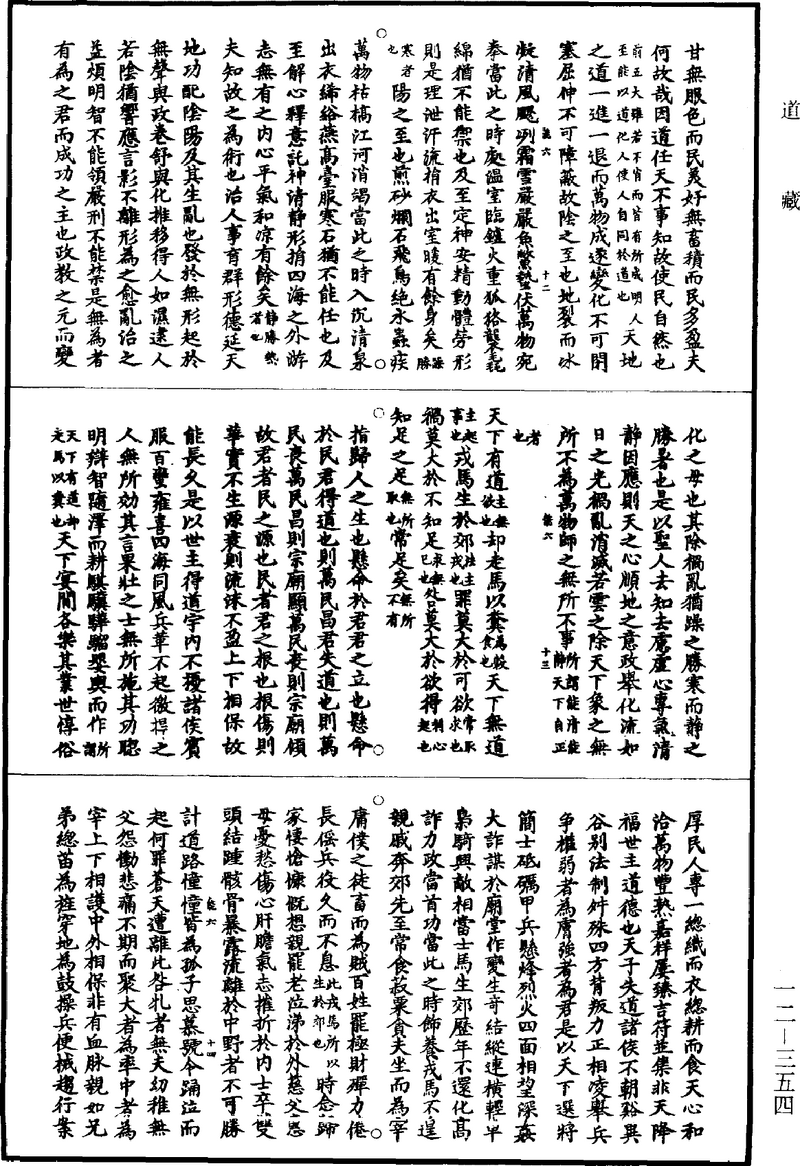 道藏
甘無服色而民美好無畜積而民多盈夫
何故哉因道任天不事知故使民自然也
前五大雖若不宵而皆有所成明人至能以道化人使人自同於道也天地
之道一進一退而萬物成遂變化不可閉
塞屈伸不可障蔽故陰之至也地裂而冰
能六 十二
凝清風飂冽霜雪嚴嚴魚鱉蟄伏萬物宛
拳當此之時處溫室臨鑪火重狐狢襲氊
綿猶不能禦也及至定神安精動體勞形
則是理泄汗流捐衣出室暖有餘身矣躁勝
寒者也陽之至也煎砂爛石飛鳥絕水蟲疾
萬物枯槁江河消竭當此之時入沉清泉
出衣絺綌燕高臺服寒石猶不能任也及
至解心釋意託神清靜形捐四海之外游
志無有之內心平氣和涼有餘矣靜勝熱者也
夫知故之為術也治人事育群形德延天
地功配陰陽及其生亂也發於無形起於
無聲與政卷舒與化推移得人如濕逮人
若陰猶響應言影不離形為之愈亂治之
益煩明智不能領嚴刑不能禁是無為者
有為之君而成功之主也政教之元而變
化之母也其除禍亂猶躁之勝寒而靜之
勝暑也是以聖人去知去慮虛心專氣清
靜因應則天之心順地之意政舉化流如
日之光禍亂消滅若雲之除天下象之無
所不為萬物師之無所不事所謂能清能靜天下自正
能六 十三
者也
天下有道主無欲也却走馬以糞為穀食也天下無道
主起事也戎馬生於郊治主戎也罪莫大於可欲常取求也
禍莫大於不知足求無處已也咎莫大於欲得利心起也
知足之足無所取也常足矣無所不有
指歸人之生也懸命於君君之立也懸命
於民君得道也則萬民昌君失道也則萬
民喪萬民昌則宗廟顯萬民喪則宗廟傾
故君者民之源也民者君之根也根傷則
華實不生源衰則流沫不盈上下相保故
能長久是以世主得道宇內不擾諸侯賓
服百蠻雍喜四海同風兵革不起徼捍之
人無所効其言果壯之士無所施其功聰
明辯智隨澤而耕騏驥驊騮嬰輿而作所謂
天下有道却走馬以糞也天下宴閒各樂其業世惇俗
厚民人專一總織而衣總耕而食天心和
洽萬物豐熟嘉祥屢臻吉符並集非天降
福世主道德也天子失道諸侯不朝谿異
谷別法制舛殊四方背叛力正相凌舉兵
爭權弱者為虜強者為君是以天下選將
簡士砥礪甲兵懸烽烈火四面相望深姦
大詐謀於廟堂作變生奇結縱連橫輕卒
梟騎興敵相當士馬生郊歷年不還化高
詐力政當首功當此之時飾養戎馬不遑
親戚奔郊先至常食菽粟貪夫坐而為宰
庸僕之徒畜而為賊百姓罷極財殫力倦
長傜兵役久而不息此戎馬所以生於郊也時愈歸
家悽愴慷慨想親罷老泣涕於外慈父恩
母憂愁傷心肝膽氣志摧折於內士卒雙
頭結踵骸骨暴露流離於中野者不可勝
能六 十四
計道路憧憧皆為孤子思慕號令踊泣而
起何罪蒼天遭離此咎札者無夫幼稚無
父怨慟悲痛不期而聚大者為率中者為
宰上下相護中外相保非有血脉親如兄
弟總苗為旌穿地為鼓操兵便械趨行案
一二—三五四